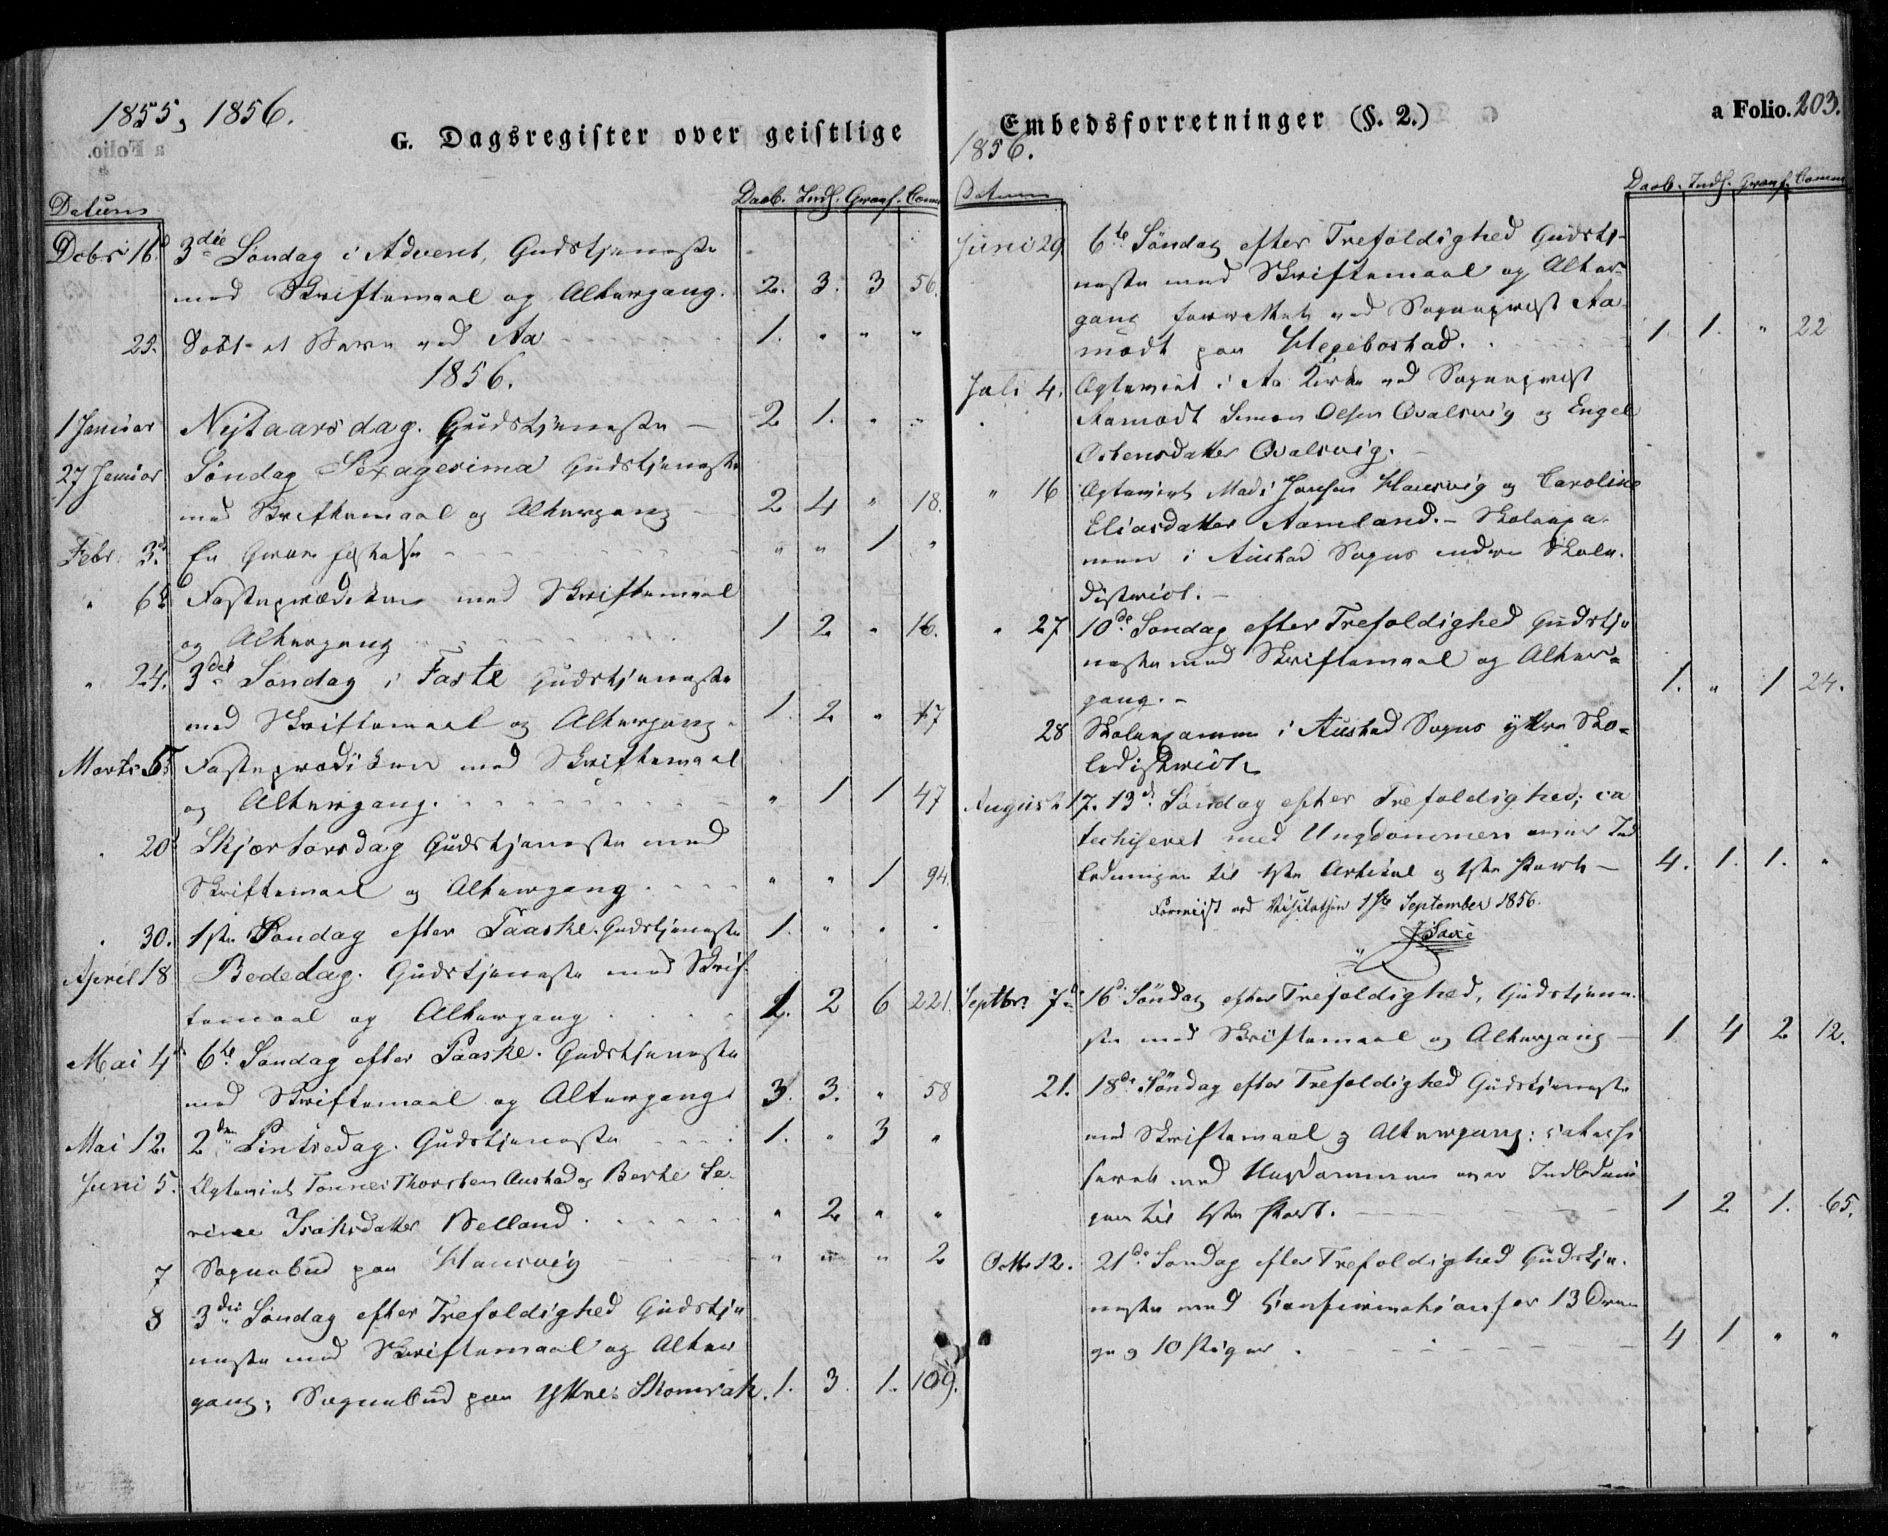 1855, 1856.
G. Dagsregister over geistlige
Datum
Daab. Indl. Graaf. Comm
Decbr 16d 3die Søndag i Advent, Gudstjeneste
med Skriftemaal og Altergang. 2. 3. 3 56.
25. Døbt et Barn ved Aa 1. " " "
1856.
1 Januar Nytaarsdag. Gudstjeneste — 2 1. " "
27 Januar Søndag Sexagesima Gudstjeneste
med Skriftemaal og Altergang — 2 4 " 18.
Febr. 3d En Grav " " 1 "
" 6d Fasteprædiken med Skriftemaal
og Altergang 1 2 " 16.
" 24. 3die Søndag i Faste Gudstjeneste
med Skriftemaal og Altergang. 1. 2 " 17
Marts 5 Fasteprædiken med Skriftemaal
og Altergang. " 1 1 47
" 20d Skjærtorsdag Gudstjeneste med
Skriftemaal og Altergang. " " 1 94.
" 30. 1ste Søndag efter Paaske. Gudstjeneste 1. " " "
April 18 Bededag. Gudstjeneste med Skrif-
temaal og Altergang 2. 2 6 221.
Mai 4d 6te Søndag efter Paaske. Gudstjeneste
med Skriftemaal og Altergang 3. 3. " 58
Mai 12. 2den Pintsedag. Gudstjeneste 1. " 3 "
Juni 5. Egteviet Tønnes Thorsten Austad og Berte Se-
rine Isaksdatter Belland. " 2 " "
7 Sognebud paa Hausvig " " " 2
8 3die Søndag efter Trefoldighed Gudstje
neste med Skriftemaal og Alter
gang; Sognebud paa Yttre Skomrak. 1. 3. 1. 109.
Embedsforretninger (§. 2.)
a Folio. 203.
1856.
Datum
Daab. Indl. Graaf. Comm
Juni 29 6te Søndag efter Trefoldighed Gudstj-
neste med Skriftemaal og Alter-
gang forrettet ved Sognepræst Aa-
modt paa Hegebostad. 1. 1. " 22
Juli 4. Egteviet i Aa Kirke ved Sognepræst
Aamodt Simon Olsen Qvalsvig og Engel
Ostensdatter Qvalsvig.
" 16 Egteviet Mads Jensen Hausvig og Caroline
Eliasdatter Aamland. – Skoleexa-
men i Austad Sogns indre Skole-
district. –
" 27 10de Søndag efter Trefoldighed Gudstje
neste med Skriftemaal og Alter-
gang. – 1. " 1 24.
28 Skoleexamen i Austad Sogns yttre Sko-
ledistrict
August 17. 13d Søndag efter Trefoldighed; ca
techiseret med Ungdommen over Ind
ledningen til 1ste Artikel og 1ste Part — 4. 1. 1. "
Foreviist ved Visitatsen 1ste September 1856.
Septbr. 7d 16d Søndag efter Trefoldighed, Gudstjene-
ste med Skriftemaal og Altergang — 1 4 2 12.
21. 18de Søndag efter Trefoldighed Gudstjeneste
med Skriftemaal og Altergang: catechi
seret med Ungdommen over Indlednin
gen til 1ste Part. 1 2 1. 65.
Octbr 12. 21de Søndag efter Trefoldighed Gudstje-
neste med Confirmation for 13 Dren
ge og 10 Piger. 4 1 " "